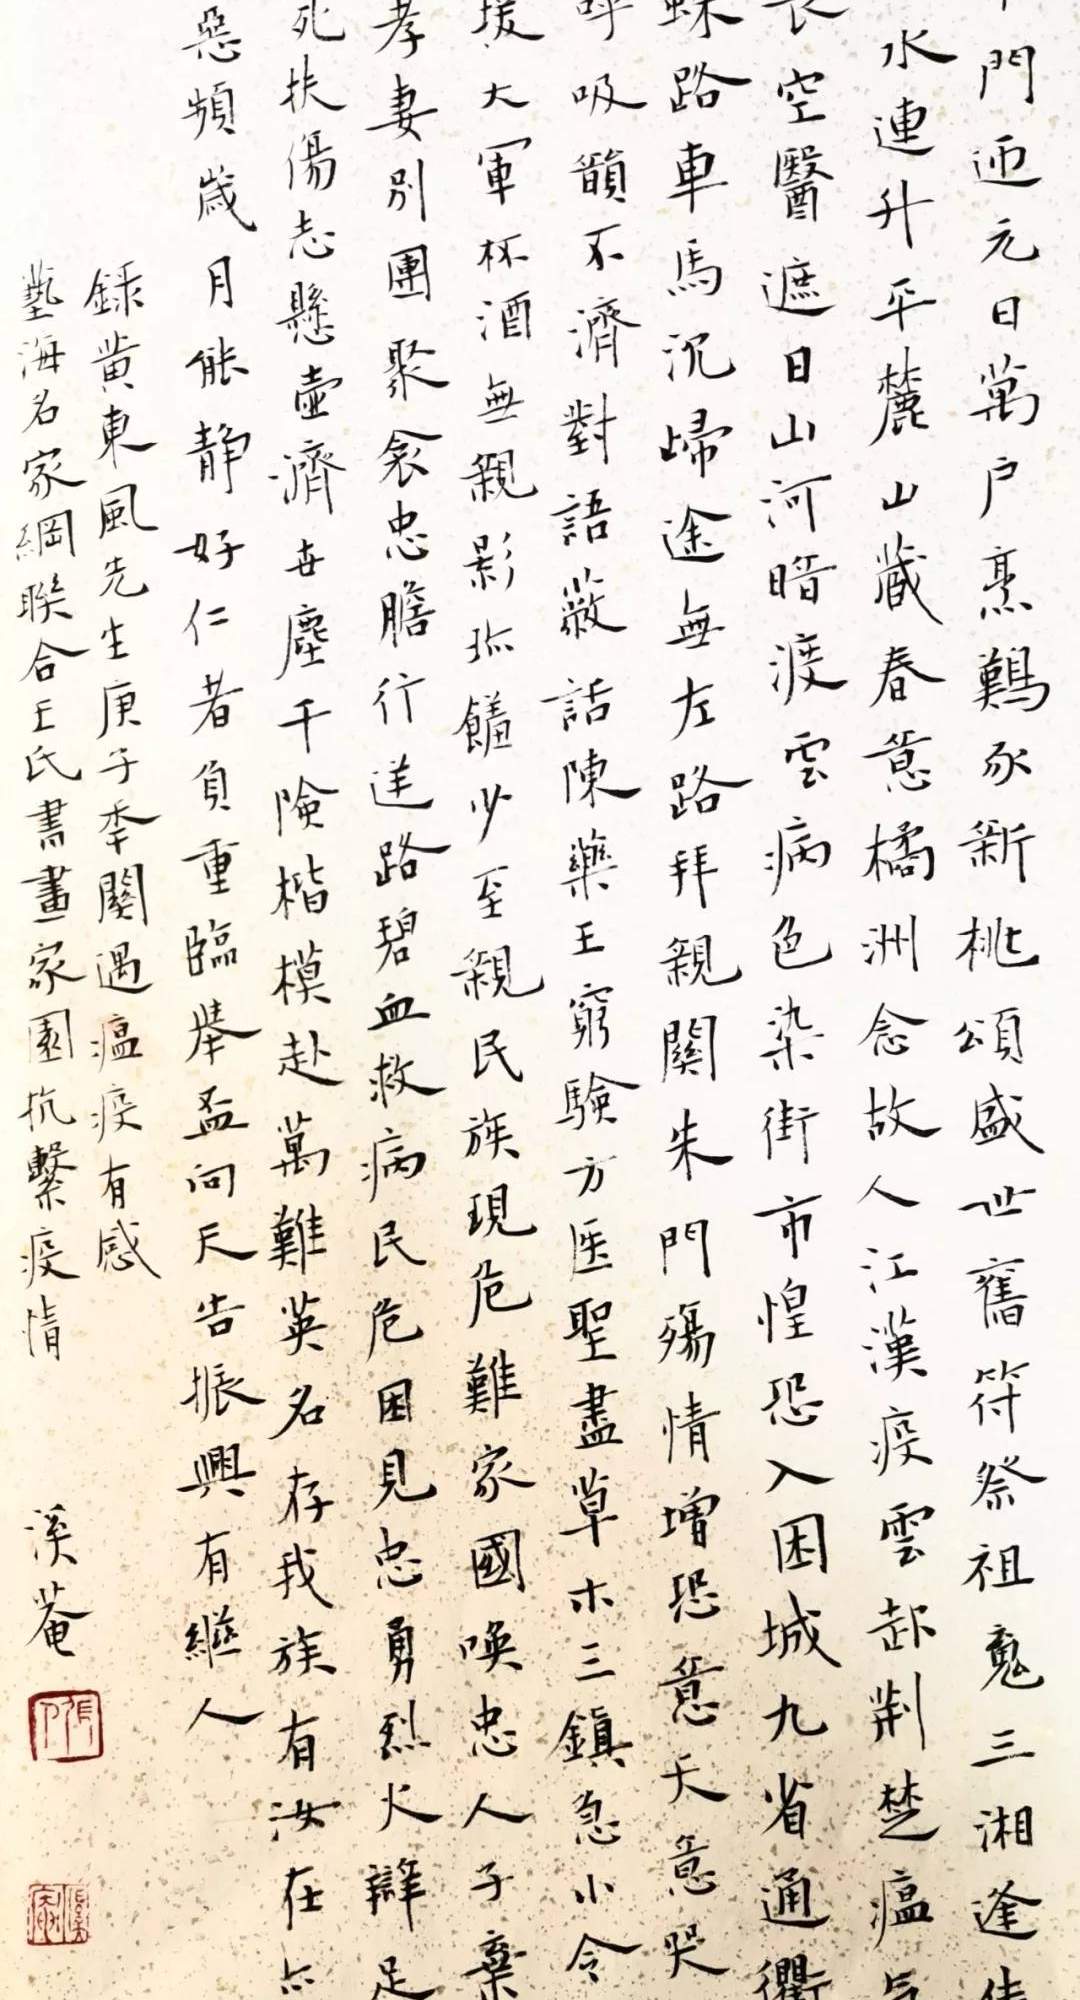 門迎元日萬戶烹鷄豕新桃頌盛世舊符祭祖魂三湘逢佳
水連升平麓山藏春意橘洲念故人江漢疫雲起荆楚瘟气
長空醫遮日山河暗渡雲病色染街市惶恐入困城九省通衢
蛛路車馬沉歸途無左路拜親關朱門殤情增恐意天意哭
呼吸顫不濟對語蔽話陳藥王窮驗方医聖盡草木三鎮急小令
援大軍杯酒無親影孤饍少至親民族現危難家國喚忠人子棄
孝妻別團聚衾忠膽行送路碧血救病民危困見忠勇烈火辯足
死扶傷志懸壺濟世塵千險楷模赴萬難英名存我族有汝在亦
惡頻歲月能靜好仁者負重臨舉盃向天告振興有繼人
錄黄東風先生庚子季關遇瘟疫有感
藝海名家網聯合王氏書畫家園抗擊疫情
溪菴